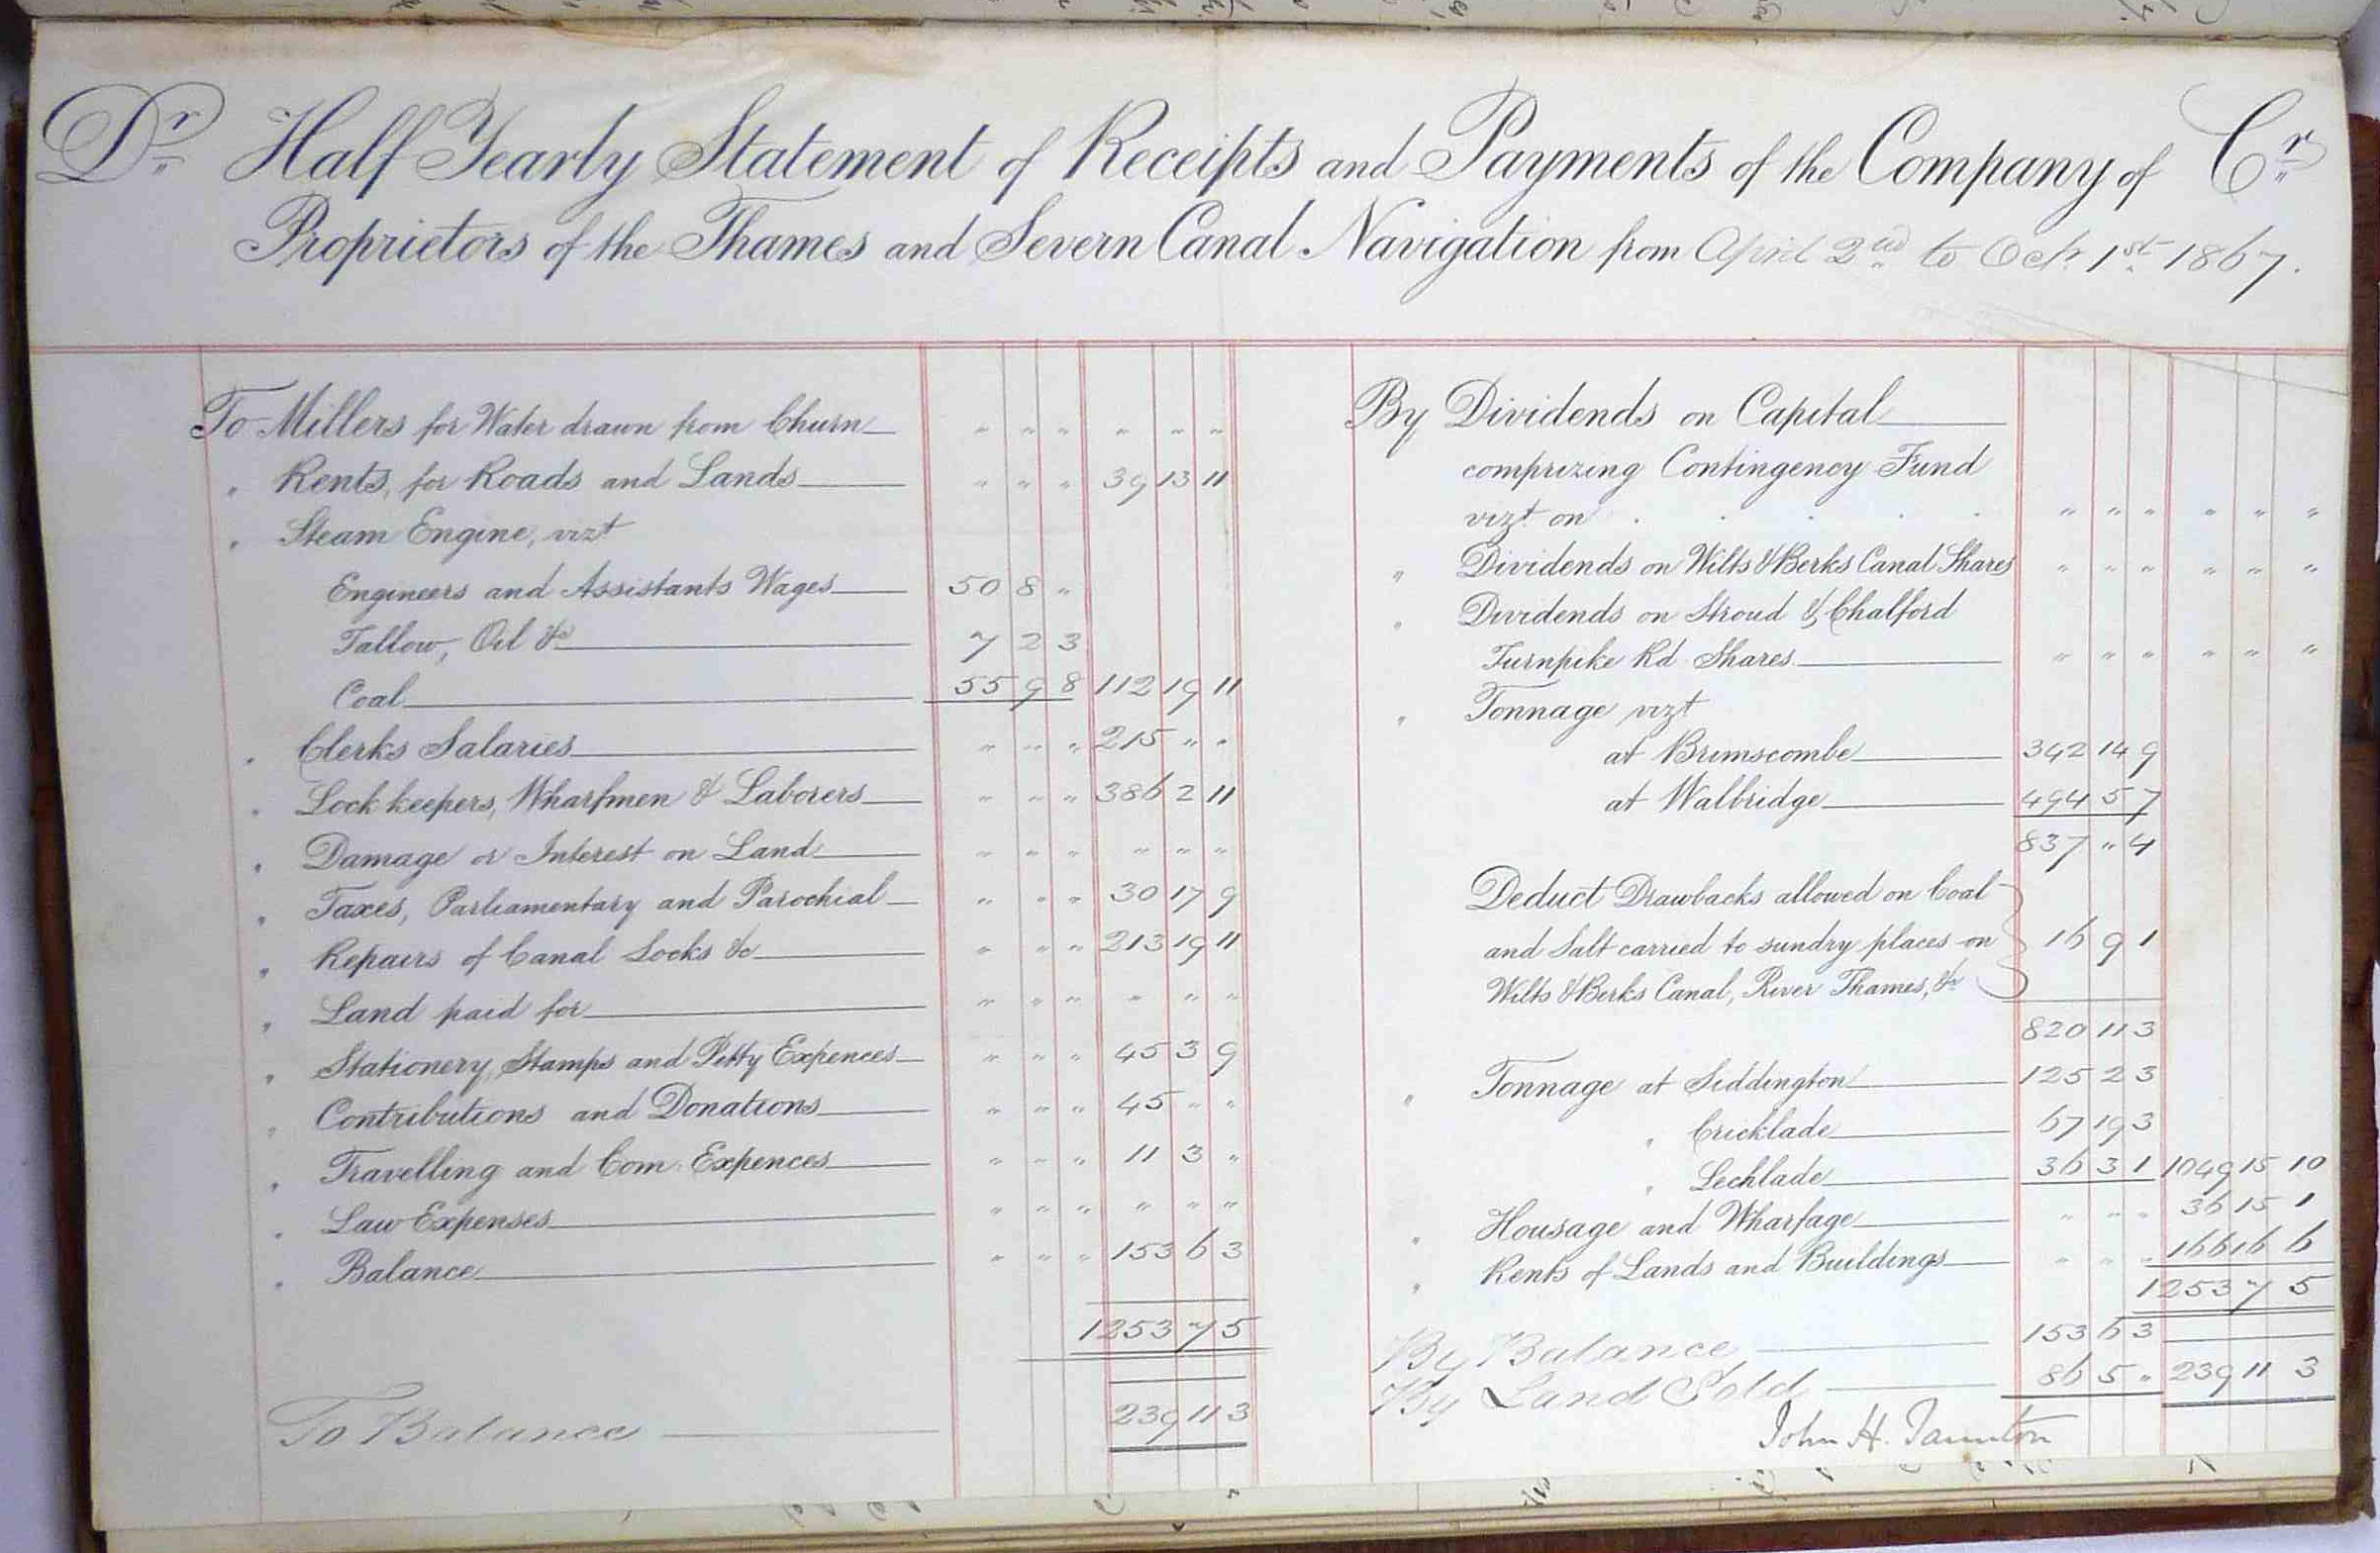 Dr Half Yearly Statement of Receipts and Payments of the Company of Cr
Proprietors of the Thames and Severn Canal Navigation from April 2nd to Octr 1st 1867.
To Millers for Water drawn from Churn " " " " " "
" Rents, for Roads and Lands " " " 39 13 11
" Steam Engine, vizt
Engineers and Assistants Wages 50 8 "
Tallow, Oil &c 7 2 3
Coal 55 9 8 112 19 11
" Clerks Salaries " " " 215 " "
" Lock keepers, Wharfmen & Laborers " " " 386 2 11
" Damage or Interest on Land " " " " " "
" Taxes, Parliamentary and Parochial " " " 30 17 9
" Repairs of Canal Locks &c " " " 213 19 11
" Land paid for " " " " " "
" Stationery, Stamps and Petty Expences " " " 45 3 9
" Contributions and Donations " " " 45 " "
" Travelling and Com: Expences " " " 11 3 "
" Law Expenses " " " " " "
" Balance " " " 153 6 3
1253 7 5
To Balance 239 11 3
By Dividends on Capital
comprizing Contingency Fund
vizt on . . . . . " " " " " "
" Dividends on Wilts & Berks Canal Shares " " " " " "
" Dividends on Stroud & Chalford
Turnpike Rd Shares " " " " " "
" Tonnage vizt
at Brimscombe 342 14 9
at Walbridge 494 5 7
837 " 4
Deduct Drawbacks allowed on Coal
and Salt carried to sundry places on 16 9 1
Wilts & Berks Canal, River Thames, &c
820 11 3
" Tonnage at Siddington 125 2 3
" Cricklade 67 19 3
" Lechlade 36 3 1 1049 15 10
" Housage and Wharfage " " " 36 15 1
" Rents of Lands and Buildings " " " 166 16 6
1253 7 5
By Balance 153 6 3
By Land Sold 86 5 " 239 11 3
John H. Taunton